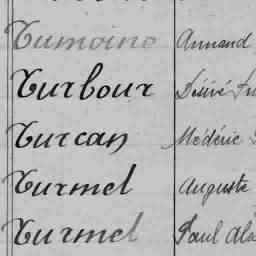 Tumoine Armand
Turbour Désiré
Turcan Médéric
Turmel Auguste
Turmel Paul